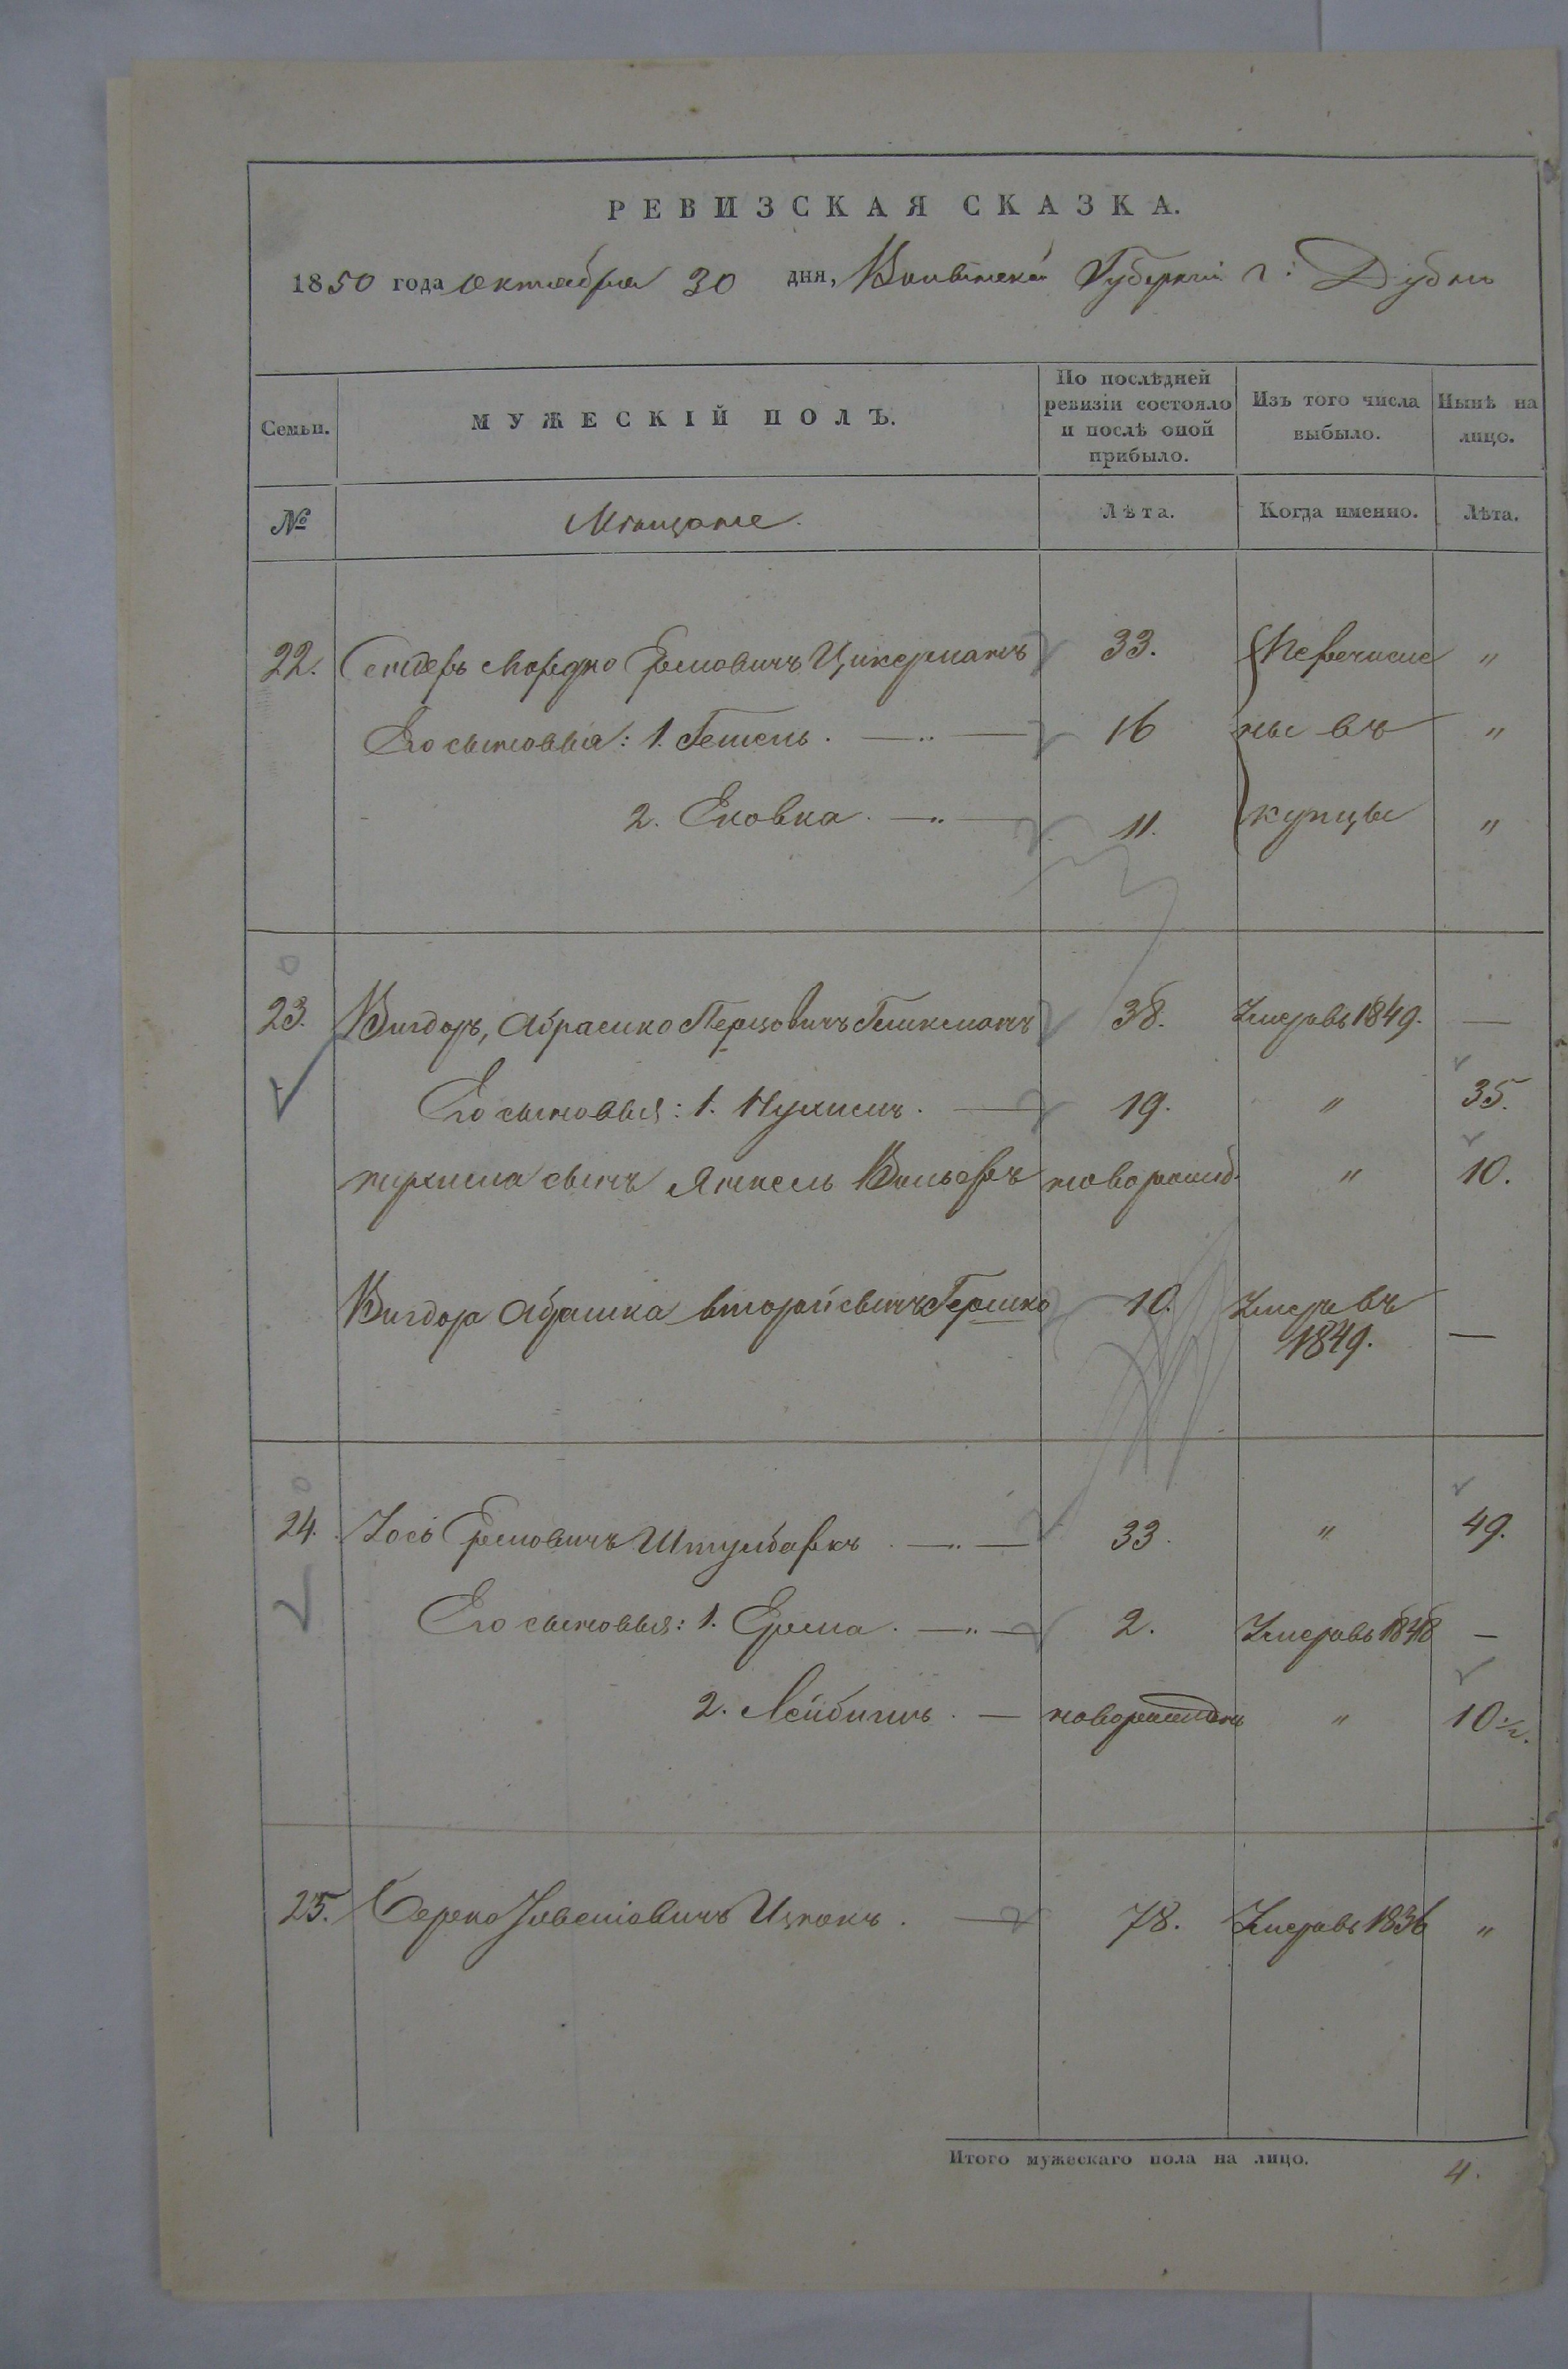 РЕВИЗСКАЯ СКАЗКА.
1850 года октября 30 дня, Волынской Губерніи г: Дубно
Семьи. МУЖЕСКІЙ ПОЛЪ. По послѣдней ревизіи состояло и послѣ оной прибыло. Изъ того числа выбыло. Нынѣ на лицо.
№ Мѣщане. Лѣта. Когда именно. Лѣта.
22. Сендеръ Мордко Ермовичъ Цикерманъ 33. Перечисле "
Его сыновья: 1. Гешель. —„— 16 ны въ "
2. Ековка. —„— 11. купцы "
23. Вигдоръ, Абрашко Перцовичъ 38. Умеръ въ 1849. —
Его сыновья: 1. Нухимъ. — 19. " 35.
нухима сынъ Янкель Вольфъ новорожд. " 10.
Вигдора Абрашка второй сынъ Гершко 10. Умеръ въ
1849. —
24. Іось Ермовичъ Штумбаркъ —„— 33. " 49.
Его сыновья: 1. Ерма. —„— 2. Умеръ въ 1848 —
2. Лейбишъ. — новорожденъ " 10 ½.
25. Берко Ицкокъ. — 78. Умеръ въ 1836 "
Итого мужескаго пола на лицо. 4.